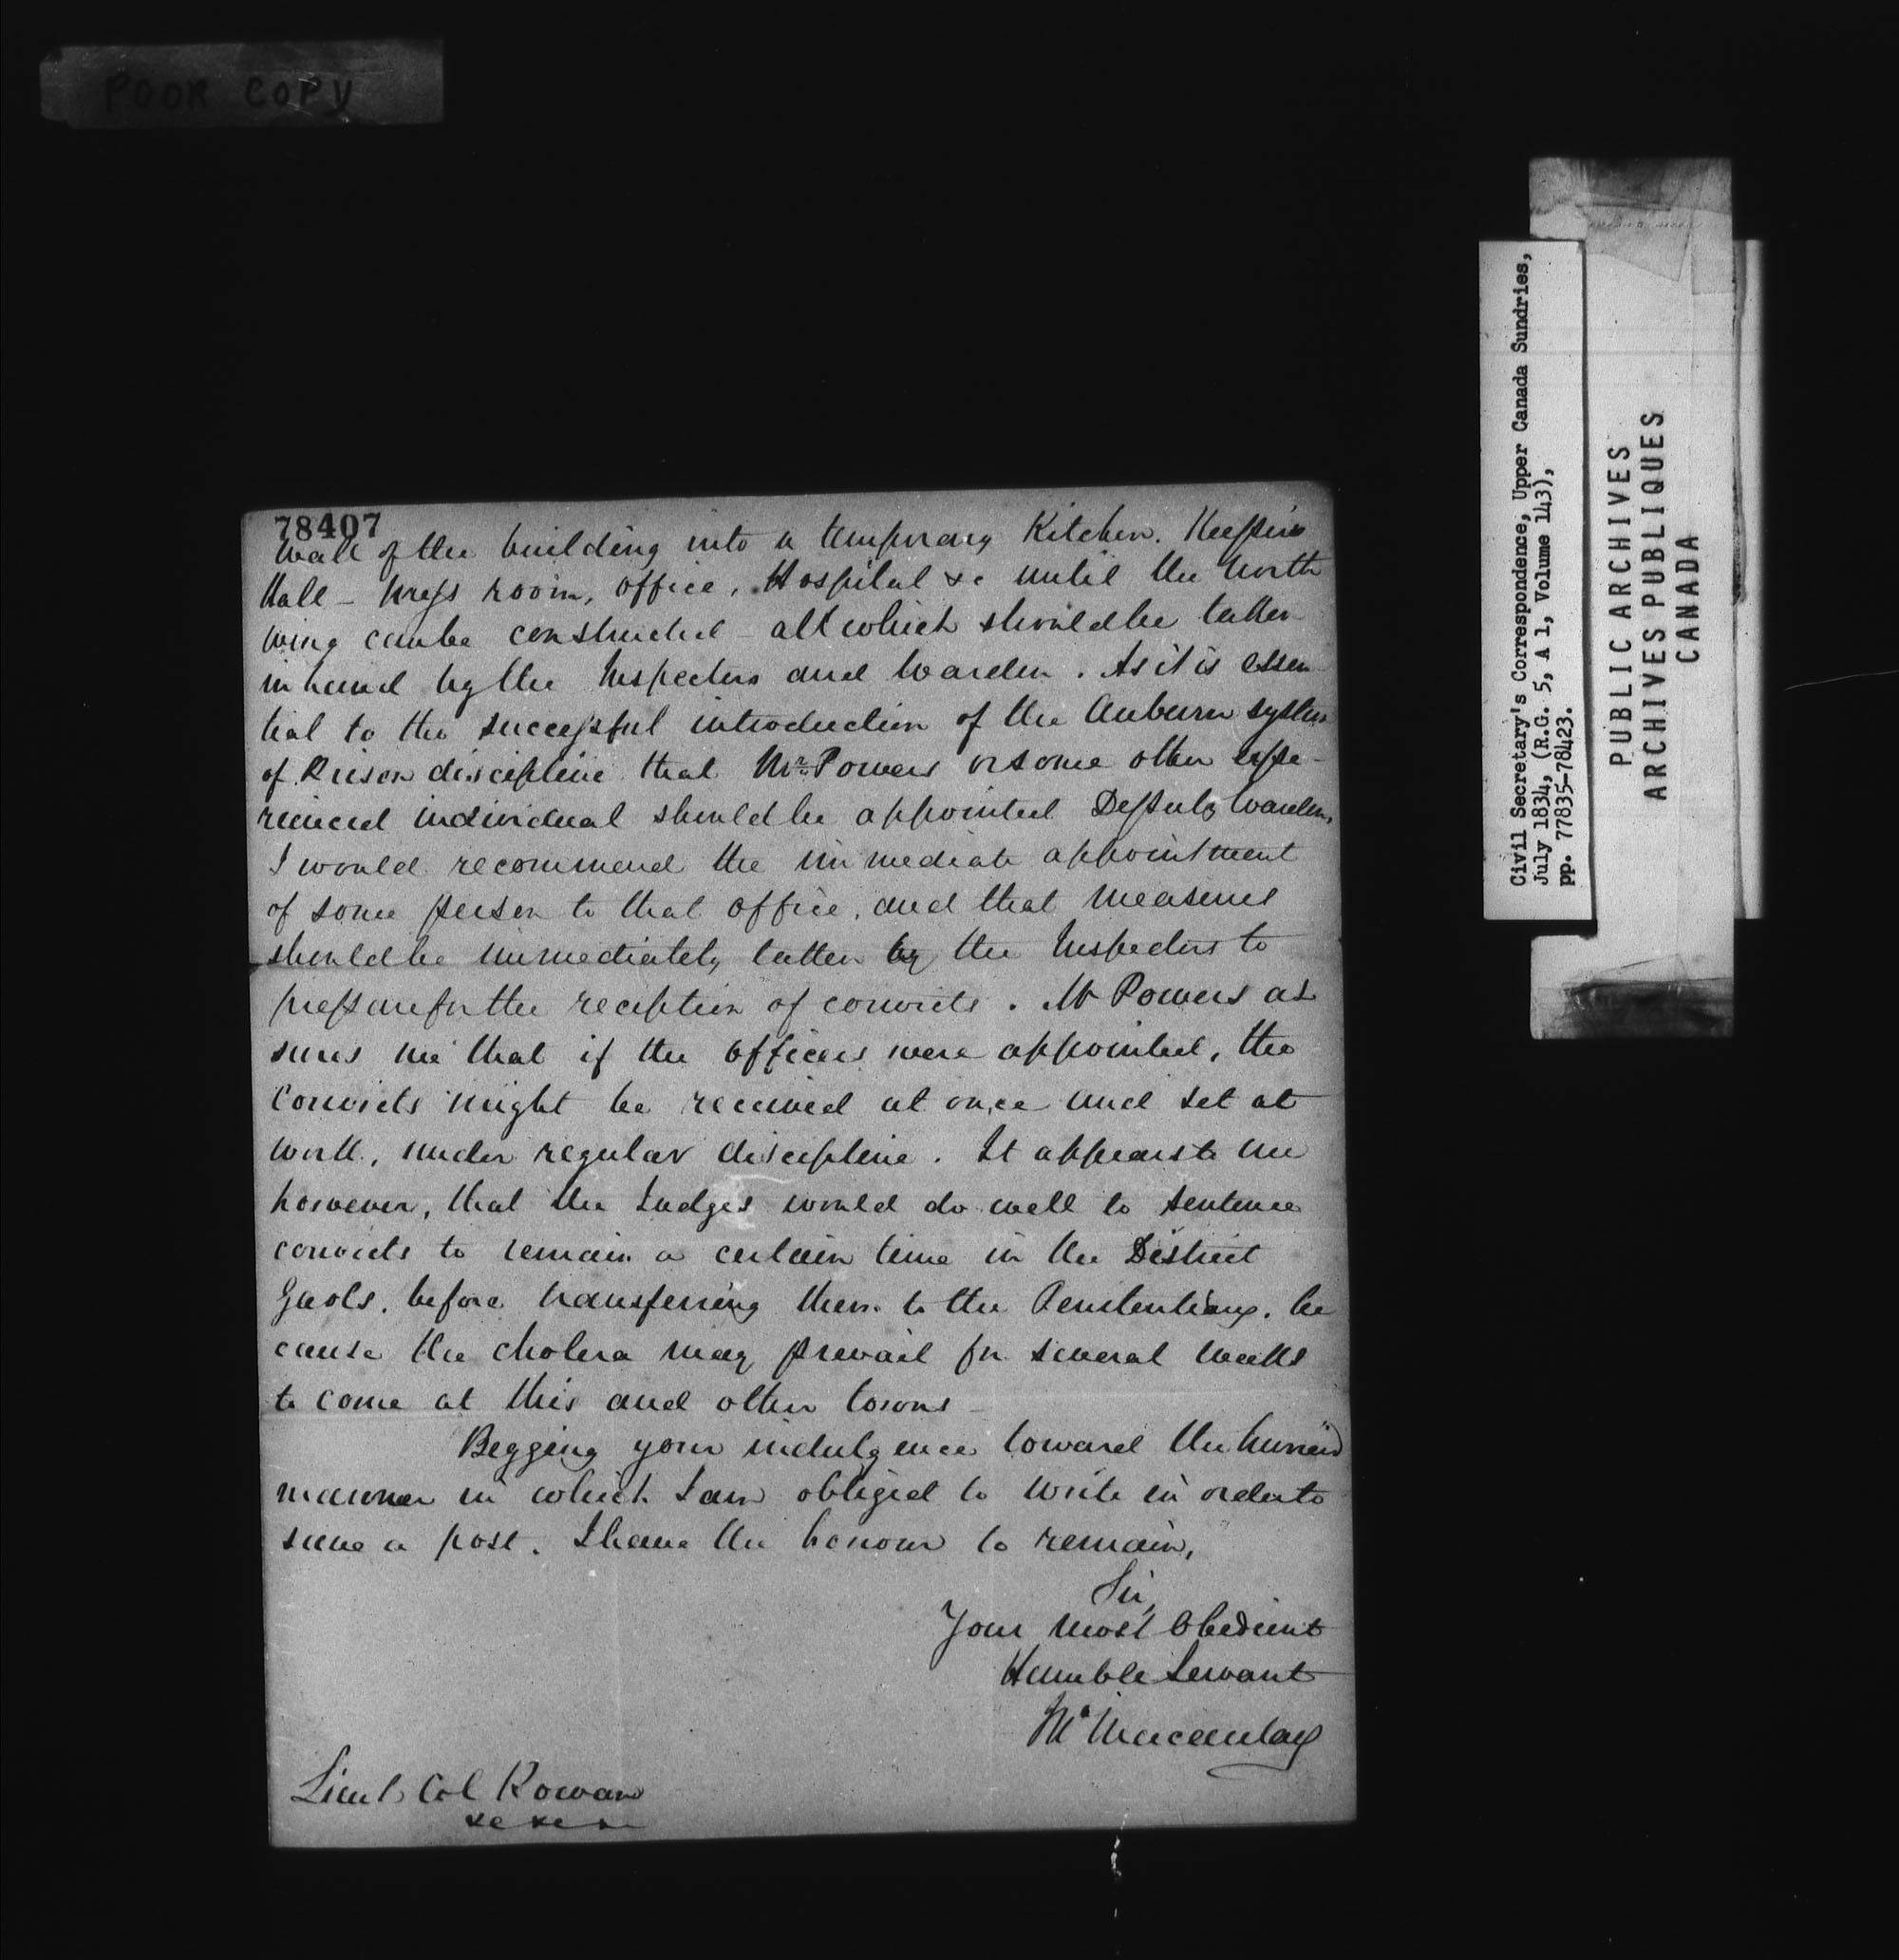 POOR COPY
78407
wall of the building into a temporary Kitchen. Keepers
Hall - Mess room, office, Hospital &c until the North
wing can be constructed all which should be taken
in hand by the Inspectors and Warden. As it is essen
tial to the successful introduction of the Auburn system
of Prison discipline that Mr. Powers or some other expe-
rienced individual should be appointed Deputy Warden,
I would recommend the immediate appointment
of some person to that office, and that measures
should be immediately taken by the Inspectors to
prepare for the reception of convicts. Mr Powers as
sures me that if the officers were appointed, the
Convicts might be received at once and set at
work, under regular discipline. It appears to me
however, that the Judges would do well to sentence
convicts to remain a certain time in the District
Gaols, before transferring them to the Penitentiary, be
cause the cholera may prevail for several weeks
to come at this and other towns
Begging your indulgence toward the hurried
manner in which I am obliged to write in order to
save a post. I have the honour to remain,
Sir,
Your most Obedient
Humble Servant
Macaulay
Lieut Col Rowan
&c &c &c
Civil Secretary's Correspondence, Upper Canada Sundries,
July 1834, (R.G. 5, A 1, Volume 143),
pp. 77835-78423.
PUBLIC ARCHIVES
ARCHIVES PUBLIQUES
CANADA